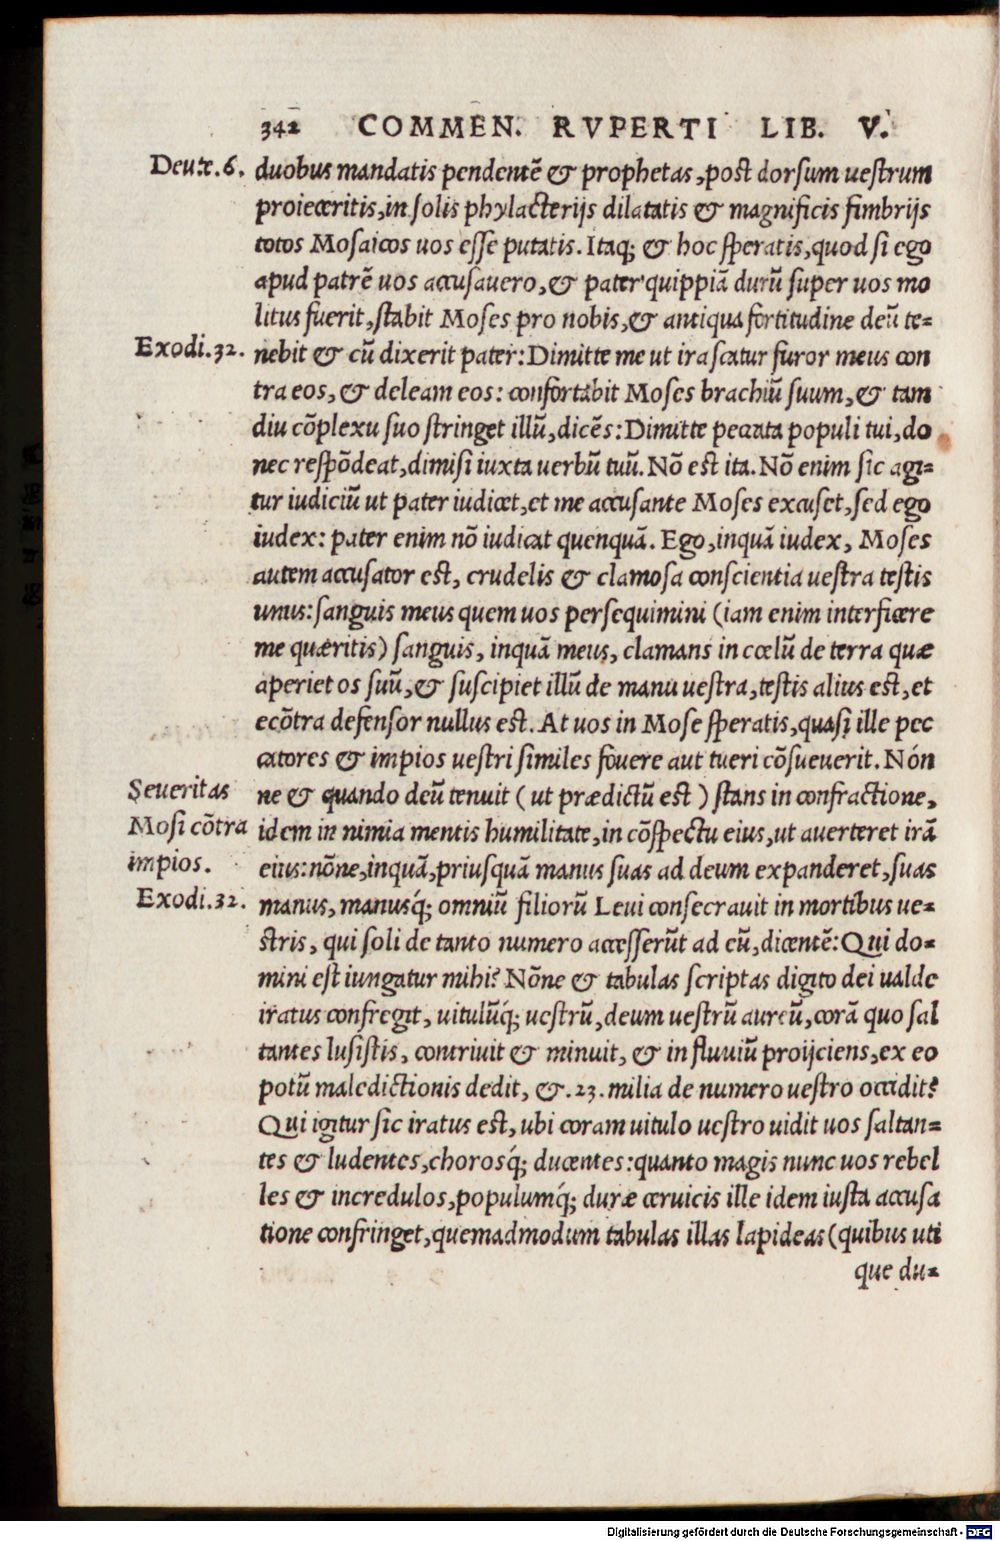 342 COMMEN. RVPERTI LIB. V.
Deut. 6. duobus mandatis pendentē & prophetas, post dorsum uestrum
proieceritis, in solis phylacterijs dilatatis & magnificis fimbrijs
totos Mosaicos uos esse putatis. Itaq; & hoc speratis, quod si ego
apud patrē uos accusauero, & pater quippiā durū super uos mo
litus fuerit, stabit Moses pro nobis, & antiqua fortitudine deū te=
Exodi. 32. nebit & cū dixerit pater: Dimitte me ut irascatur furor meus con
tra eos, & deleam eos: confortabit Moses brachiū suum, & tam
diu cōplexu suo stringet illū, dicēs: Dimitte peccata populi tui, do
nec respōdeat, dimisi iuxta uerbū tuū. Nō est ita. Nō enim sic agi=
tur iudiciū ut pater iudicet, et me accusante Moses excuset, sed ego
iudex: pater enim nō iudicat quenquā. Ego, inquā iudex, Moses
autem accusator est, crudelis & clamosa conscientia uestra testis
unus: sanguis meus quem uos persequimini (iam enim interficere
me quæritis) sanguis, inquā meus, clamans in cœlū de terra quæ
aperiet os suū, & suscipiet illū de manu uestra, testis alius est, et
ecōtra defensor nullus est. At uos in Mose speratis, quasi ille pec
catores & impios uestri similes fouere aut tueri cōsueuerit. Nón
Seueritas ne & quando deū tenuit (ut prædictū est) stans in confractione,
Mosi cōtra idem in nimia mentis humilitate, in cōspectu eius, ut auerteret irā
impios. eius: nōne, inquā, priusquā manus suas ad deum expanderet, suas
Exodi. 32. manus, manusq́; omniū filiorū Leui consecrauit in mortibus ue=
stris, qui soli de tanto numero accesserūt ad eū, dicentē: Qui do=
mini est iungatur mihi? Nōne & tabulas scriptas digito dei ualde
iratus confregit, uitulūq́; uestrū, deum uestrū aureū, corā quo sal
tantes lusistis, contriuit & minuit, & in fluuiū proijciens, ex eo
potū maledictionis dedit, &. 23. milia de numero uestro occidit?
Qui igitur sic iratus est, ubi coram uitulo uestro uidit uos saltan=
tes & ludentes, chorosq́; ducentes: quanto magis nunc uos rebel
les & incredulos, populumq́; duræ ceruicis ille idem iusta accusa
tione confringet, quemadmodum tabulas illas lapideas (quibus uti
que du=
Digitalisierung gefördert durch die Deutsche Forschungsgemeinschaft - DFG